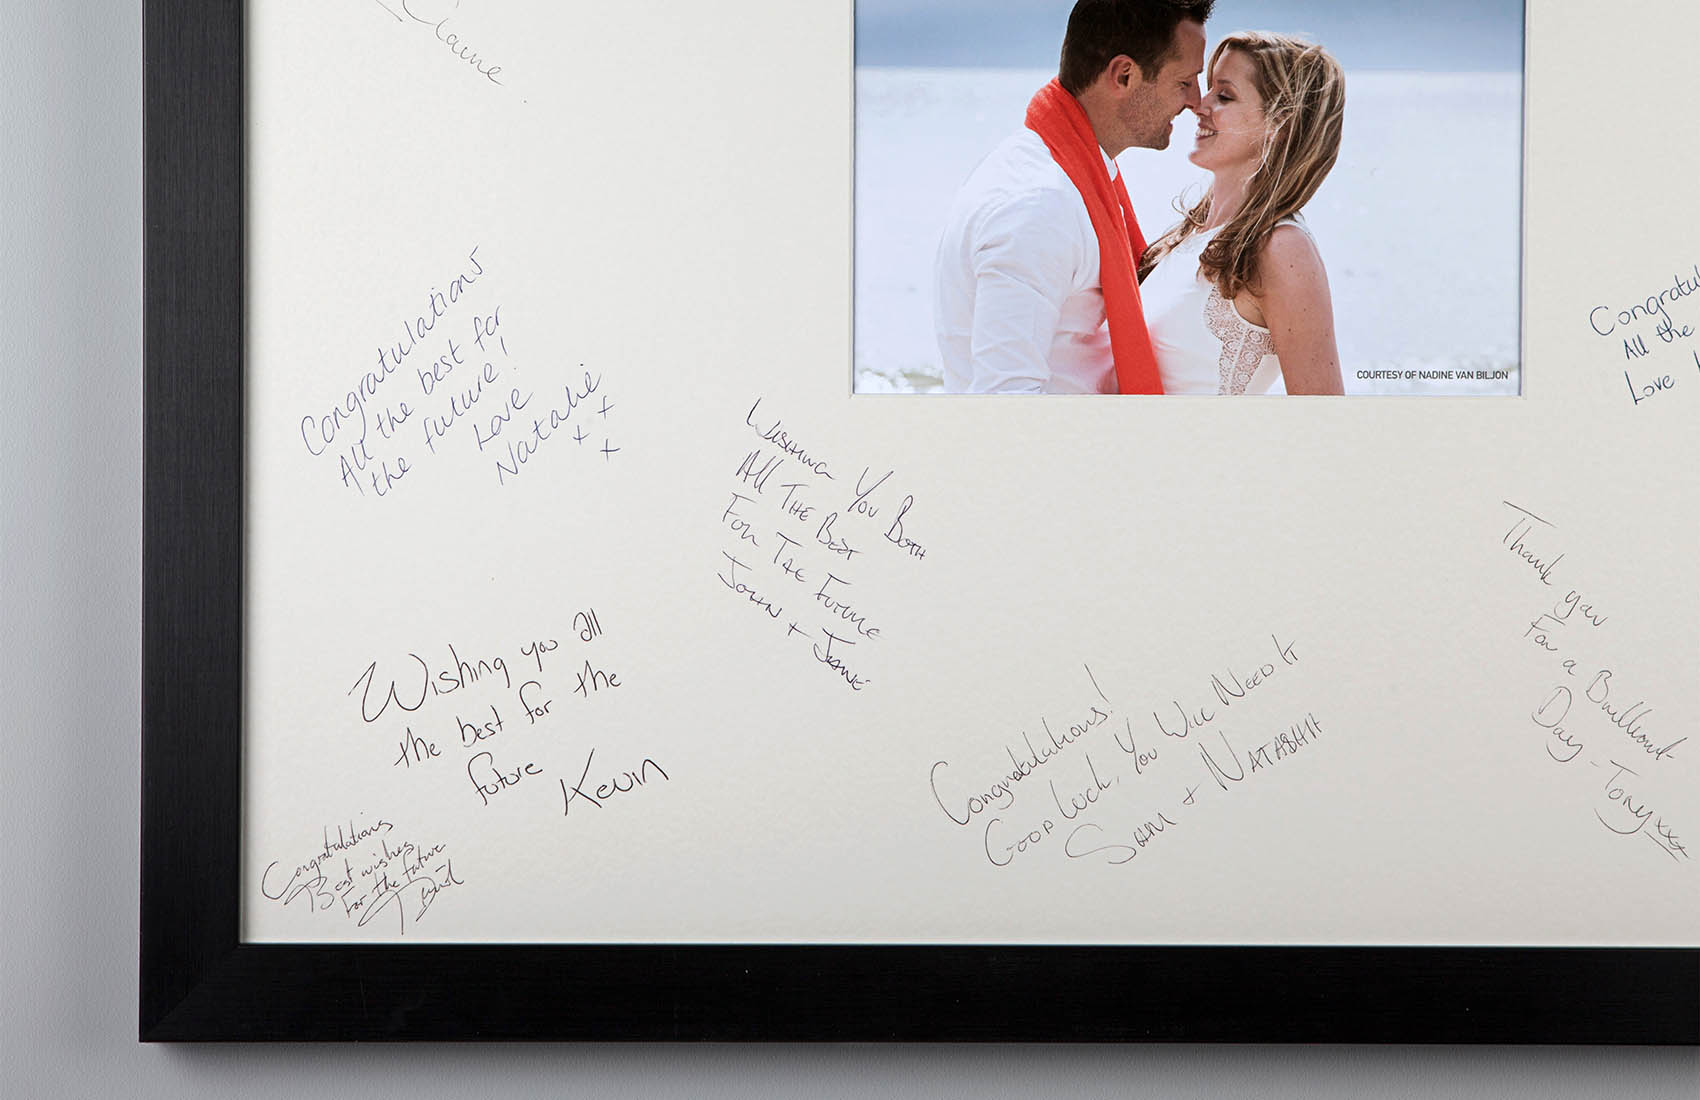 Congratulations
All the best for
the future!
Love
Natalie
x x
x
COURTESY OF NADINE VAN BILJON
Congratul
All the
Love
Wishing You Both
All The Best
For The Future
John + Jeane
Thank you
For a Brilliant
Day - Tony xxx
Wishing you all
the best for the
future
Kevin
Congratulations!
Good Luck, You Will Need It
Sam + Natasha
Congratulations
Best wishes
For the future
David